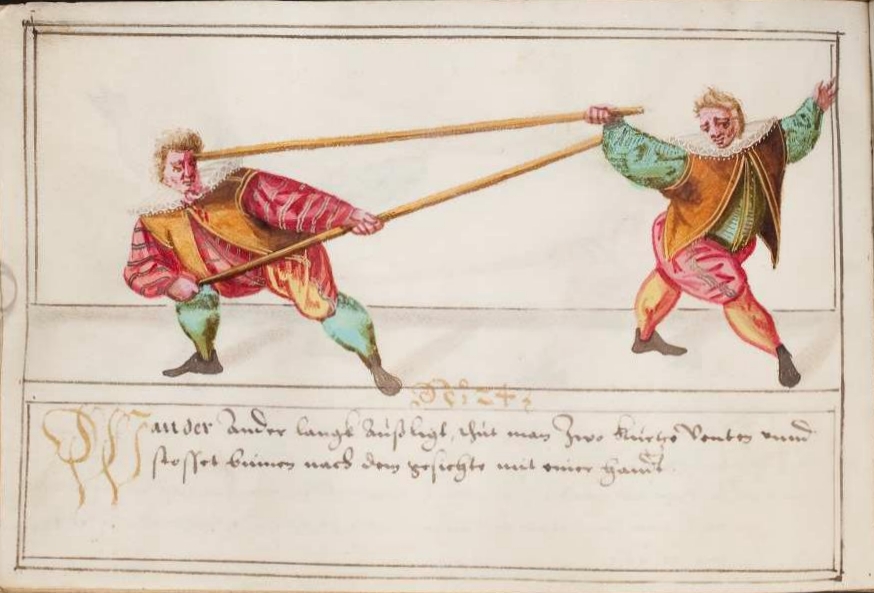 N° 24
Wan der Ander langk Außligt, thut man Zwo kurtze Venten vnnd
stosset binnen nach dem gesichte mit einer handt